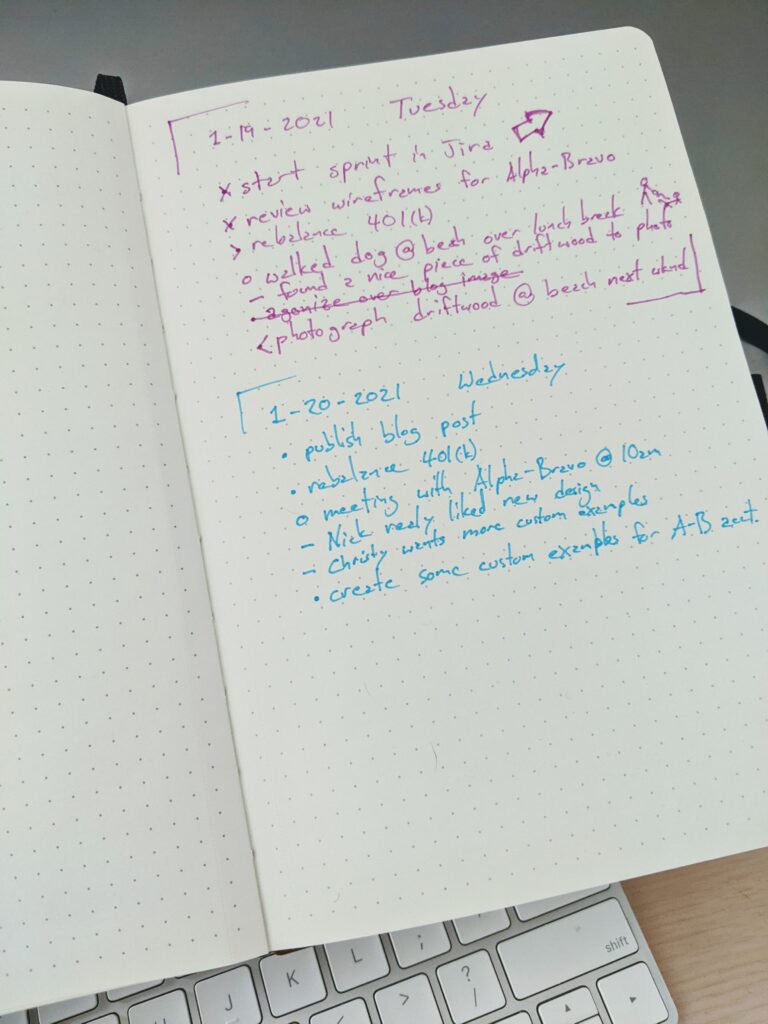 1-19-2021 Tuesday
x start sprint in Jira
x review wireframes for Alpha-Bravo
> rebalance 401(k)
o walked dog @ beah over lunch break
- found a nice piece of driftwood to photo
• agonize over blog image
< photograph driftwood @ beach next wknd
1-20-2021 Wednesday
• publish blog post
• rebalance 401(k)
o meeting with Alpha-Bravo @ 10am
- Nick really liked new design
- Christy wants more custom examples
• create some custom examples for A-B acct.
J
K
L
;
>
?
/
shift